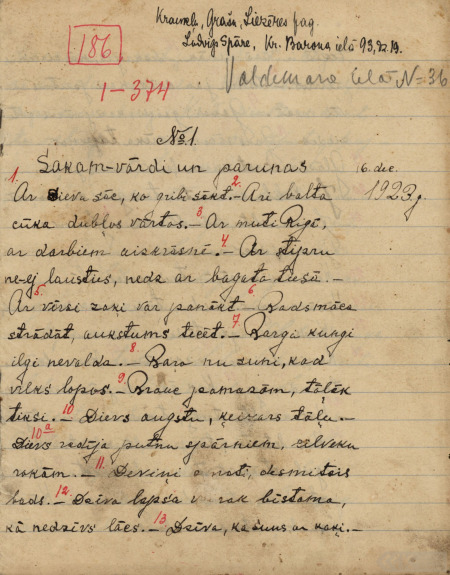 186
Krauklī, Grašu, Liezēres pag.
Ludvigs Spāre, Kr. Barona ielā 93, dz. 19.
Valdemara ielā N=36
1-374
№1.
Sakam-vārdi un parunas
6. dec.
1923g.
1. Ar Dieva sāc, ko gribi sākt. 2. - Ari balta
cūka dubļos vārtas. 3. - Ar muti Rīgā,
ar darbiem aizkrāsnē. 4. - Ar stipru
ne-ej laustus, nedz ar bagātu tiesā. -
5. Ar vērsi zaķi var panākt - 6. Bads māca
strādāt, aukstums tecēt. - 7. Bargi kungi
ilgi nevalda. - 8. Bara nu suni, kad
vilks lopos. - 9. Brauc pamazām, tālāk
tiksi. - 10 Dievs augstu, ķeizars tālu. -
10a Dievs radīja putnu spārniem, cilvēku
rokām. - 11. Deviņi amati, desmitais
bads. - 12 Dzīva lapsa vairāk bīstama,
kā nedzīvs lācis. - 13 Dzīvo, kā suns ar kaķi. -